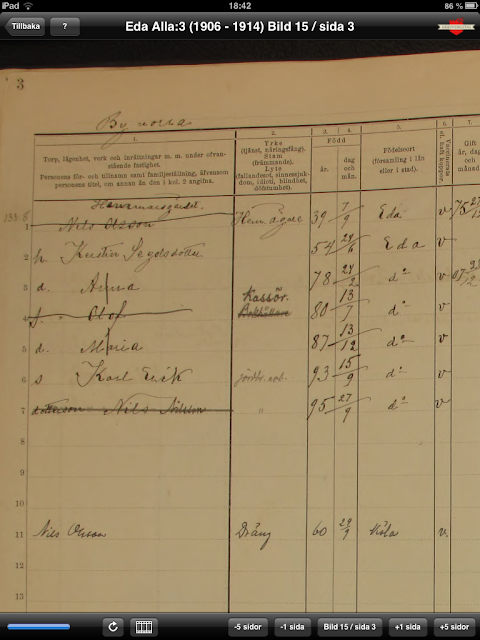 iPad 18:42 86 %
Tillbaka ? Eda Alla:3 (1906 - 1914) Bild 15 / sida 3
3
By norra
1. 2. 3. 4. 5. 6. 7.
Torp, lägenhet, verk och inrättningar m. m. under ofvan-
stående fastighet.
Personens för- och tillnamn samt familjeställning, äfvensom
personens titel, om annan än den i kol. 2 angifna.
Yrke
(tjänst, näringsfång).
Stam
(främmande).
Lyte
(fallandesot, sinnessjuk-
dom, idioti, blindhet,
döfstumhet).
Född
år.
dag
och
mån.
Födelseort
(församling i län
eller i stad).
Vaccinerade
el. haft koppor.
Gift
år, dag
och
månad
Hemmansägare
1 Nils Olsson Hem.ägare 39 7/9 Eda v 75 27
2 h. Kerstin Segolsdotter 54 24/6 Eda v
3 d. Anna 78 24/2 do v 07
Kassör.
4 s. Olof Bokhållare 80 13/7 do v
5 d. Maria 87 13/12 do v
6 s Karl Erik jordbr. arb. 93 15/9 do v
7 dotterson Nils " 95 27/9 do v
8
9
10
11 Nils Olsson Dräng 60 29/9 Köla v.
12
13
-5 sidor -1 sida Bild 15 / sida 3 +1 sida +5 sidor